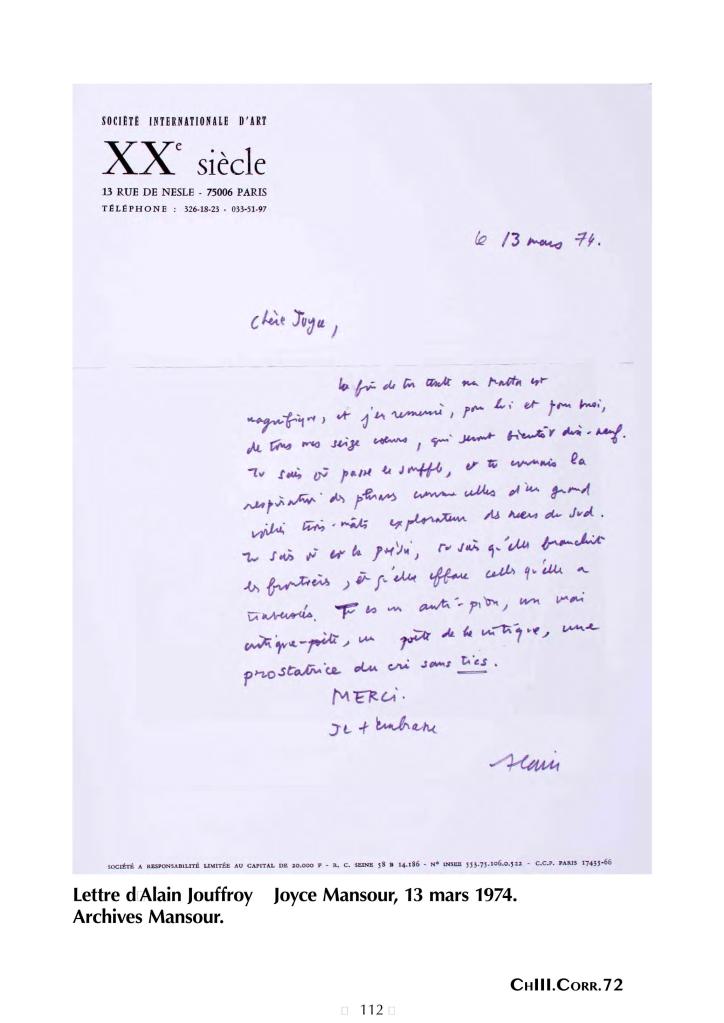 SOCIÉTÉ INTERNATIONALE D'ART
XXe siècle
13 RUE DE NESLE - 75006 PARIS
TÉLÉPHONE : 326-18-23 - 033-51-97
le 13 mars 74.
Chère Joyce,
La fin de ton texte sur Matta est
magnifique, et j'en remercie, pour lui et pour moi,
de tous mes seize cœurs, qui seront bientôt dix-neuf.
Tu sais où passe le souffle, et tu connais la
respiration des phrases comme celles d'un grand
voilier trois-mâts explorateur des mers du Sud.
Tu sais où est la poésie, tu sais qu'elle franchit
les frontières, et qu'elle efface celles qu'elle a
traversées. Tu es un anti-pion, un vrai
critique-poète, un poète de la critique, une
prostatrice du cri sans tics.
MERCI.
Je t'embrasse
Alain
SOCIÉTÉ A RESPONSABILITÉ LIMITÉE AU CAPITAL DE 20.000 F - R. C. SEINE 58 B 14.186 - N° INSEE 553.75.106.0.522 - C.C.P. PARIS 17435-66
Lettre d Alain Jouffroy Joyce Mansour, 13 mars 1974.
Archives Mansour.
CHIII.CORR.72
112